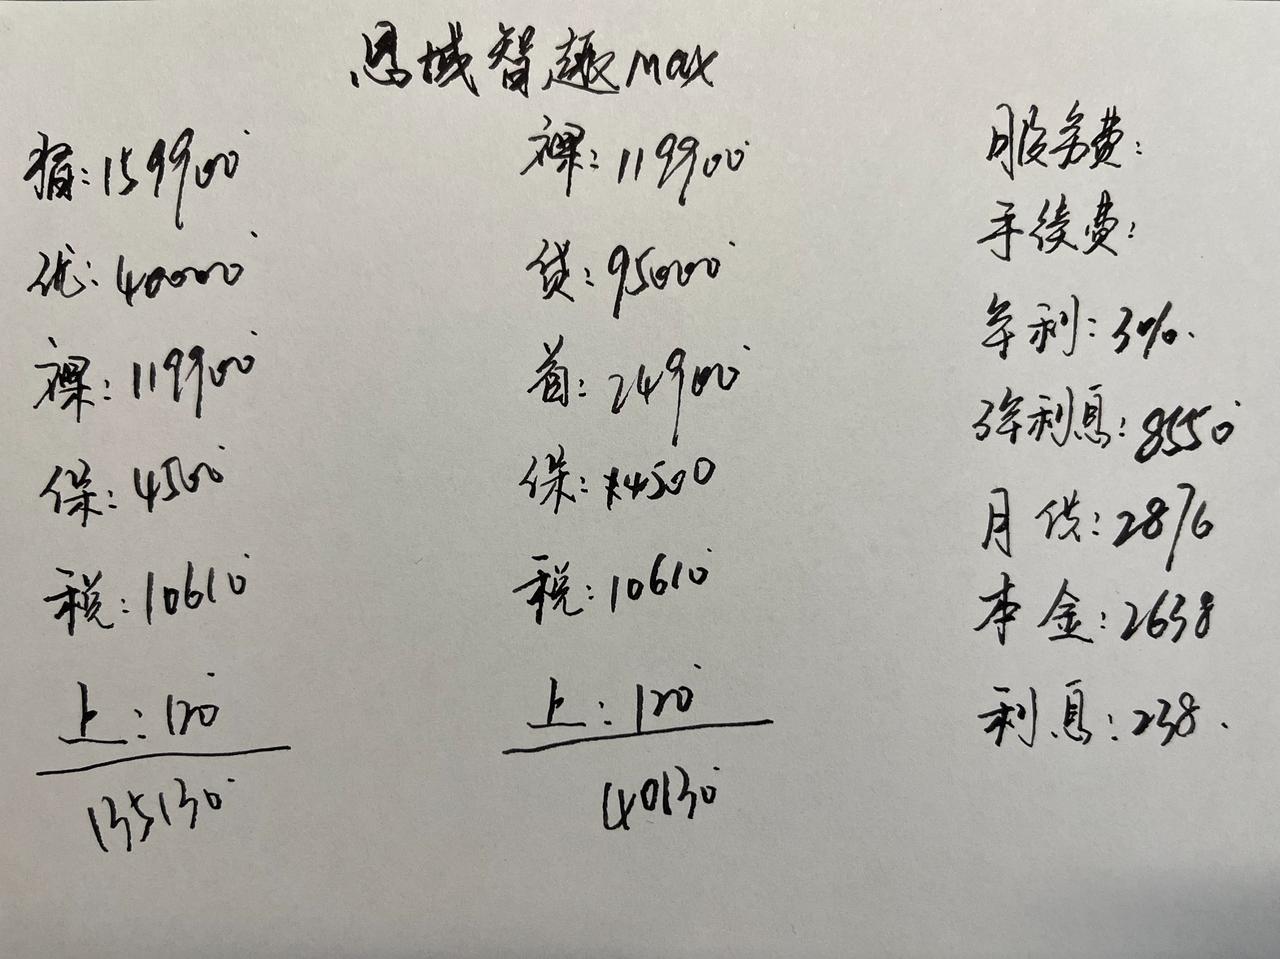 思域智趣max
指: 159900
优: 40000
裸: 119900
保: 4500
税: 10610
上: 120
135130
裸: 119900
贷: 95000
首: 24900
保: 4500
税: 10610
上: 120
40130
服务费:
手续费:
年利: 3%.
3年利息: 8550
月供: 2876
本金: 2638
利息: 238.